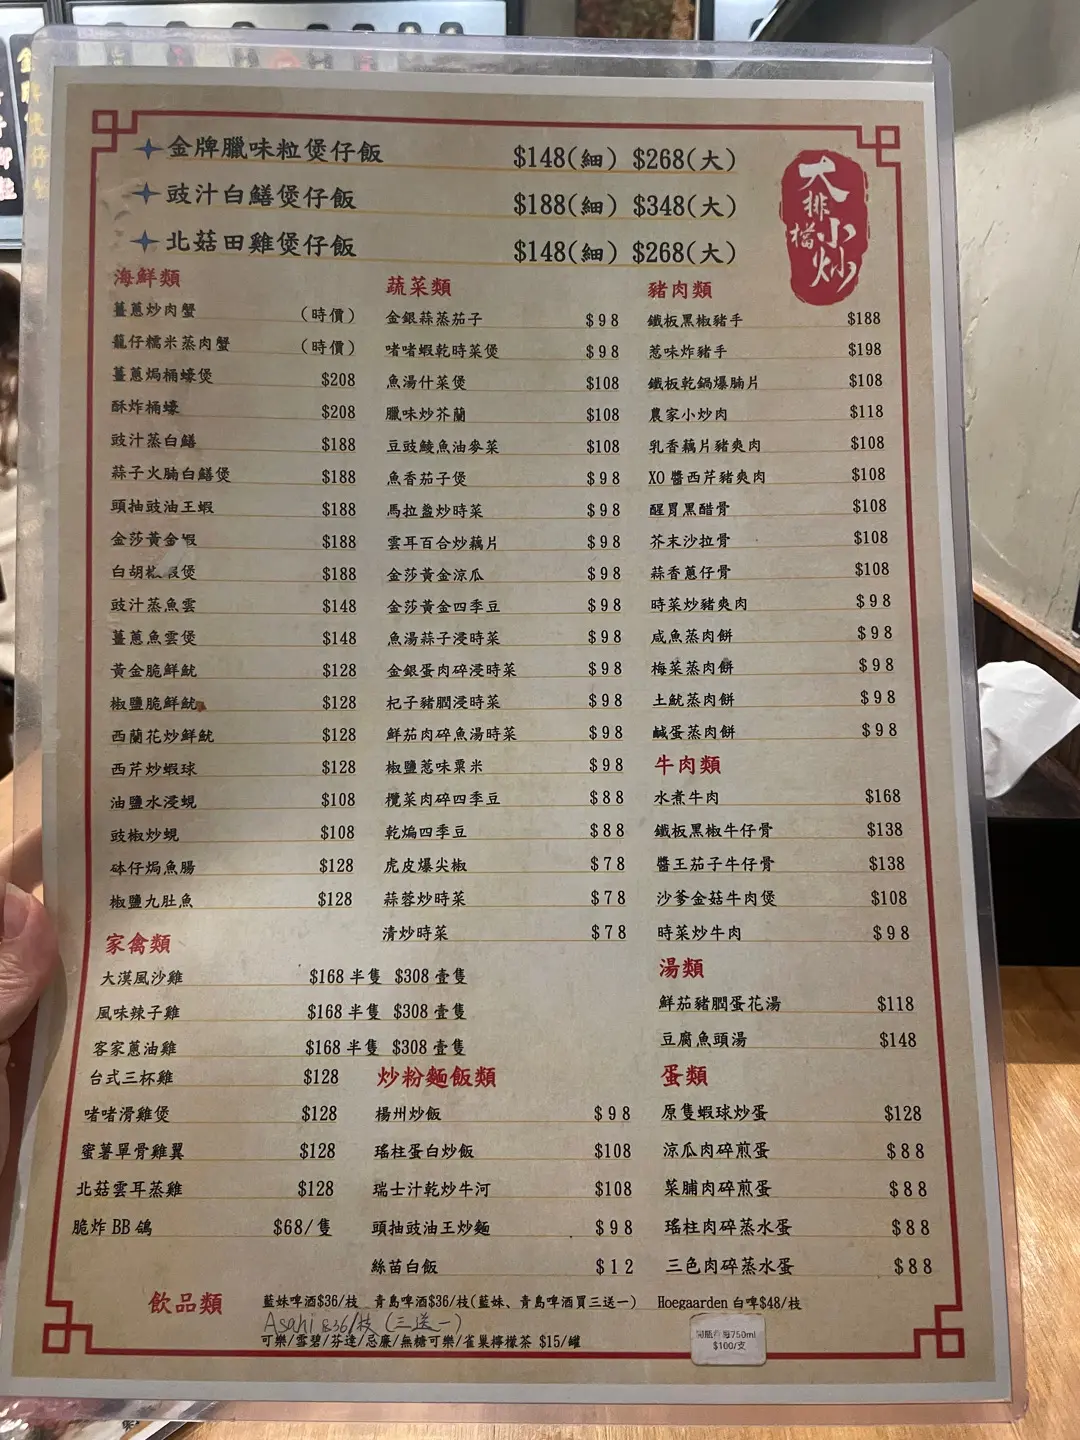 金牌臘味粒煲仔飯 $148(細) $268(大)
豉汁白鱔煲仔飯 $188(細) $348(大)
北菇田雞煲仔飯 $148(細) $268(大)
大排檔小炒
海鮮類
薑蔥炒肉蟹 (時價)
籠仔糯米蒸肉蟹 (時價)
薑蔥焗桶蠔煲 $208
酥炸桶蠔 $208
豉汁蒸白鱔 $188
蒜子火腩白鱔煲 $188
頭抽豉油王蝦 $188
金莎黃金蝦 $188
白胡椒蝦煲 $188
豉汁蒸魚雲 $148
薑蔥魚雲煲 $148
黃金脆鮮魷 $128
椒鹽脆鮮魷 $128
西蘭花炒鮮魷 $128
西芹炒蝦球 $128
油鹽水浸蜆 $108
豉椒炒蜆 $108
砵仔焗魚腸 $128
椒鹽九肚魚 $128
家禽類
大漠風沙雞 $168 半隻 $308 壹隻
風味辣子雞 $168 半隻 $308 壹隻
客家蔥油雞 $168 半隻 $308 壹隻
台式三杯雞 $128
啫啫滑雞煲 $128
蜜薯單骨雞翼 $128
北菇雲耳蒸雞 $128
脆炸 BB 鴿 $68/隻
蔬菜類
金銀蒜蒸茄子 $98
啫啫蝦乾時菜煲 $98
魚湯什菜煲 $108
臘味炒芥蘭 $108
豆豉鯪魚油麥菜 $108
魚香茄子煲 $98
馬拉盞炒時菜 $98
雲耳百合炒藕片 $98
金莎黃金涼瓜 $98
金莎黃金四季豆 $98
魚湯蒜子浸時菜 $98
金銀蛋肉碎浸時菜 $98
杞子豬膶浸時菜 $98
鮮茄肉碎魚湯時菜 $98
椒鹽惹味粟米 $98
欖菜肉碎四季豆 $88
乾煸四季豆 $88
虎皮爆尖椒 $78
蒜蓉炒時菜 $78
清炒時菜 $78
炒粉麵飯類
楊州炒飯 $98
瑤柱蛋白炒飯 $108
瑞士汁乾炒牛河 $108
頭抽豉油王炒麵 $98
絲苗白飯 $12
豬肉類
鐵板黑椒豬手 $188
惹味炸豬手 $198
鐵板乾鍋爆腩片 $108
農家小炒肉 $118
乳香藕片豬爽肉 $108
XO 醬西芹豬爽肉 $108
醒胃黑醋骨 $108
芥末沙拉骨 $108
蒜香蔥仔骨 $108
時菜炒豬爽肉 $98
咸魚蒸肉餅 $98
梅菜蒸肉餅 $98
土魷蒸肉餅 $98
鹹蛋蒸肉餅 $98
牛肉類
水煮牛肉 $168
鐵板黑椒牛仔骨 $138
醬王茄子牛仔骨 $138
沙爹金菇牛肉煲 $108
時菜炒牛肉 $98
湯類
鮮茄豬膶蛋花湯 $118
豆腐魚頭湯 $148
蛋類
原隻蝦球炒蛋 $128
涼瓜肉碎煎蛋 $88
菜脯肉碎煎蛋 $88
瑤柱肉碎蒸水蛋 $88
三色肉碎蒸水蛋 $88
飲品類
藍妹啤酒$36/枝 青島啤酒$36/枝(藍妹、青島啤酒買三送一) Hoegaarden 白啤$48/枝
Asahi $36/枝 (三送一)
可樂/雪碧/芬達/忌廉/無糖可樂/雀巢檸檬茶 $15/罐
開瓶費每750ml
$100/支